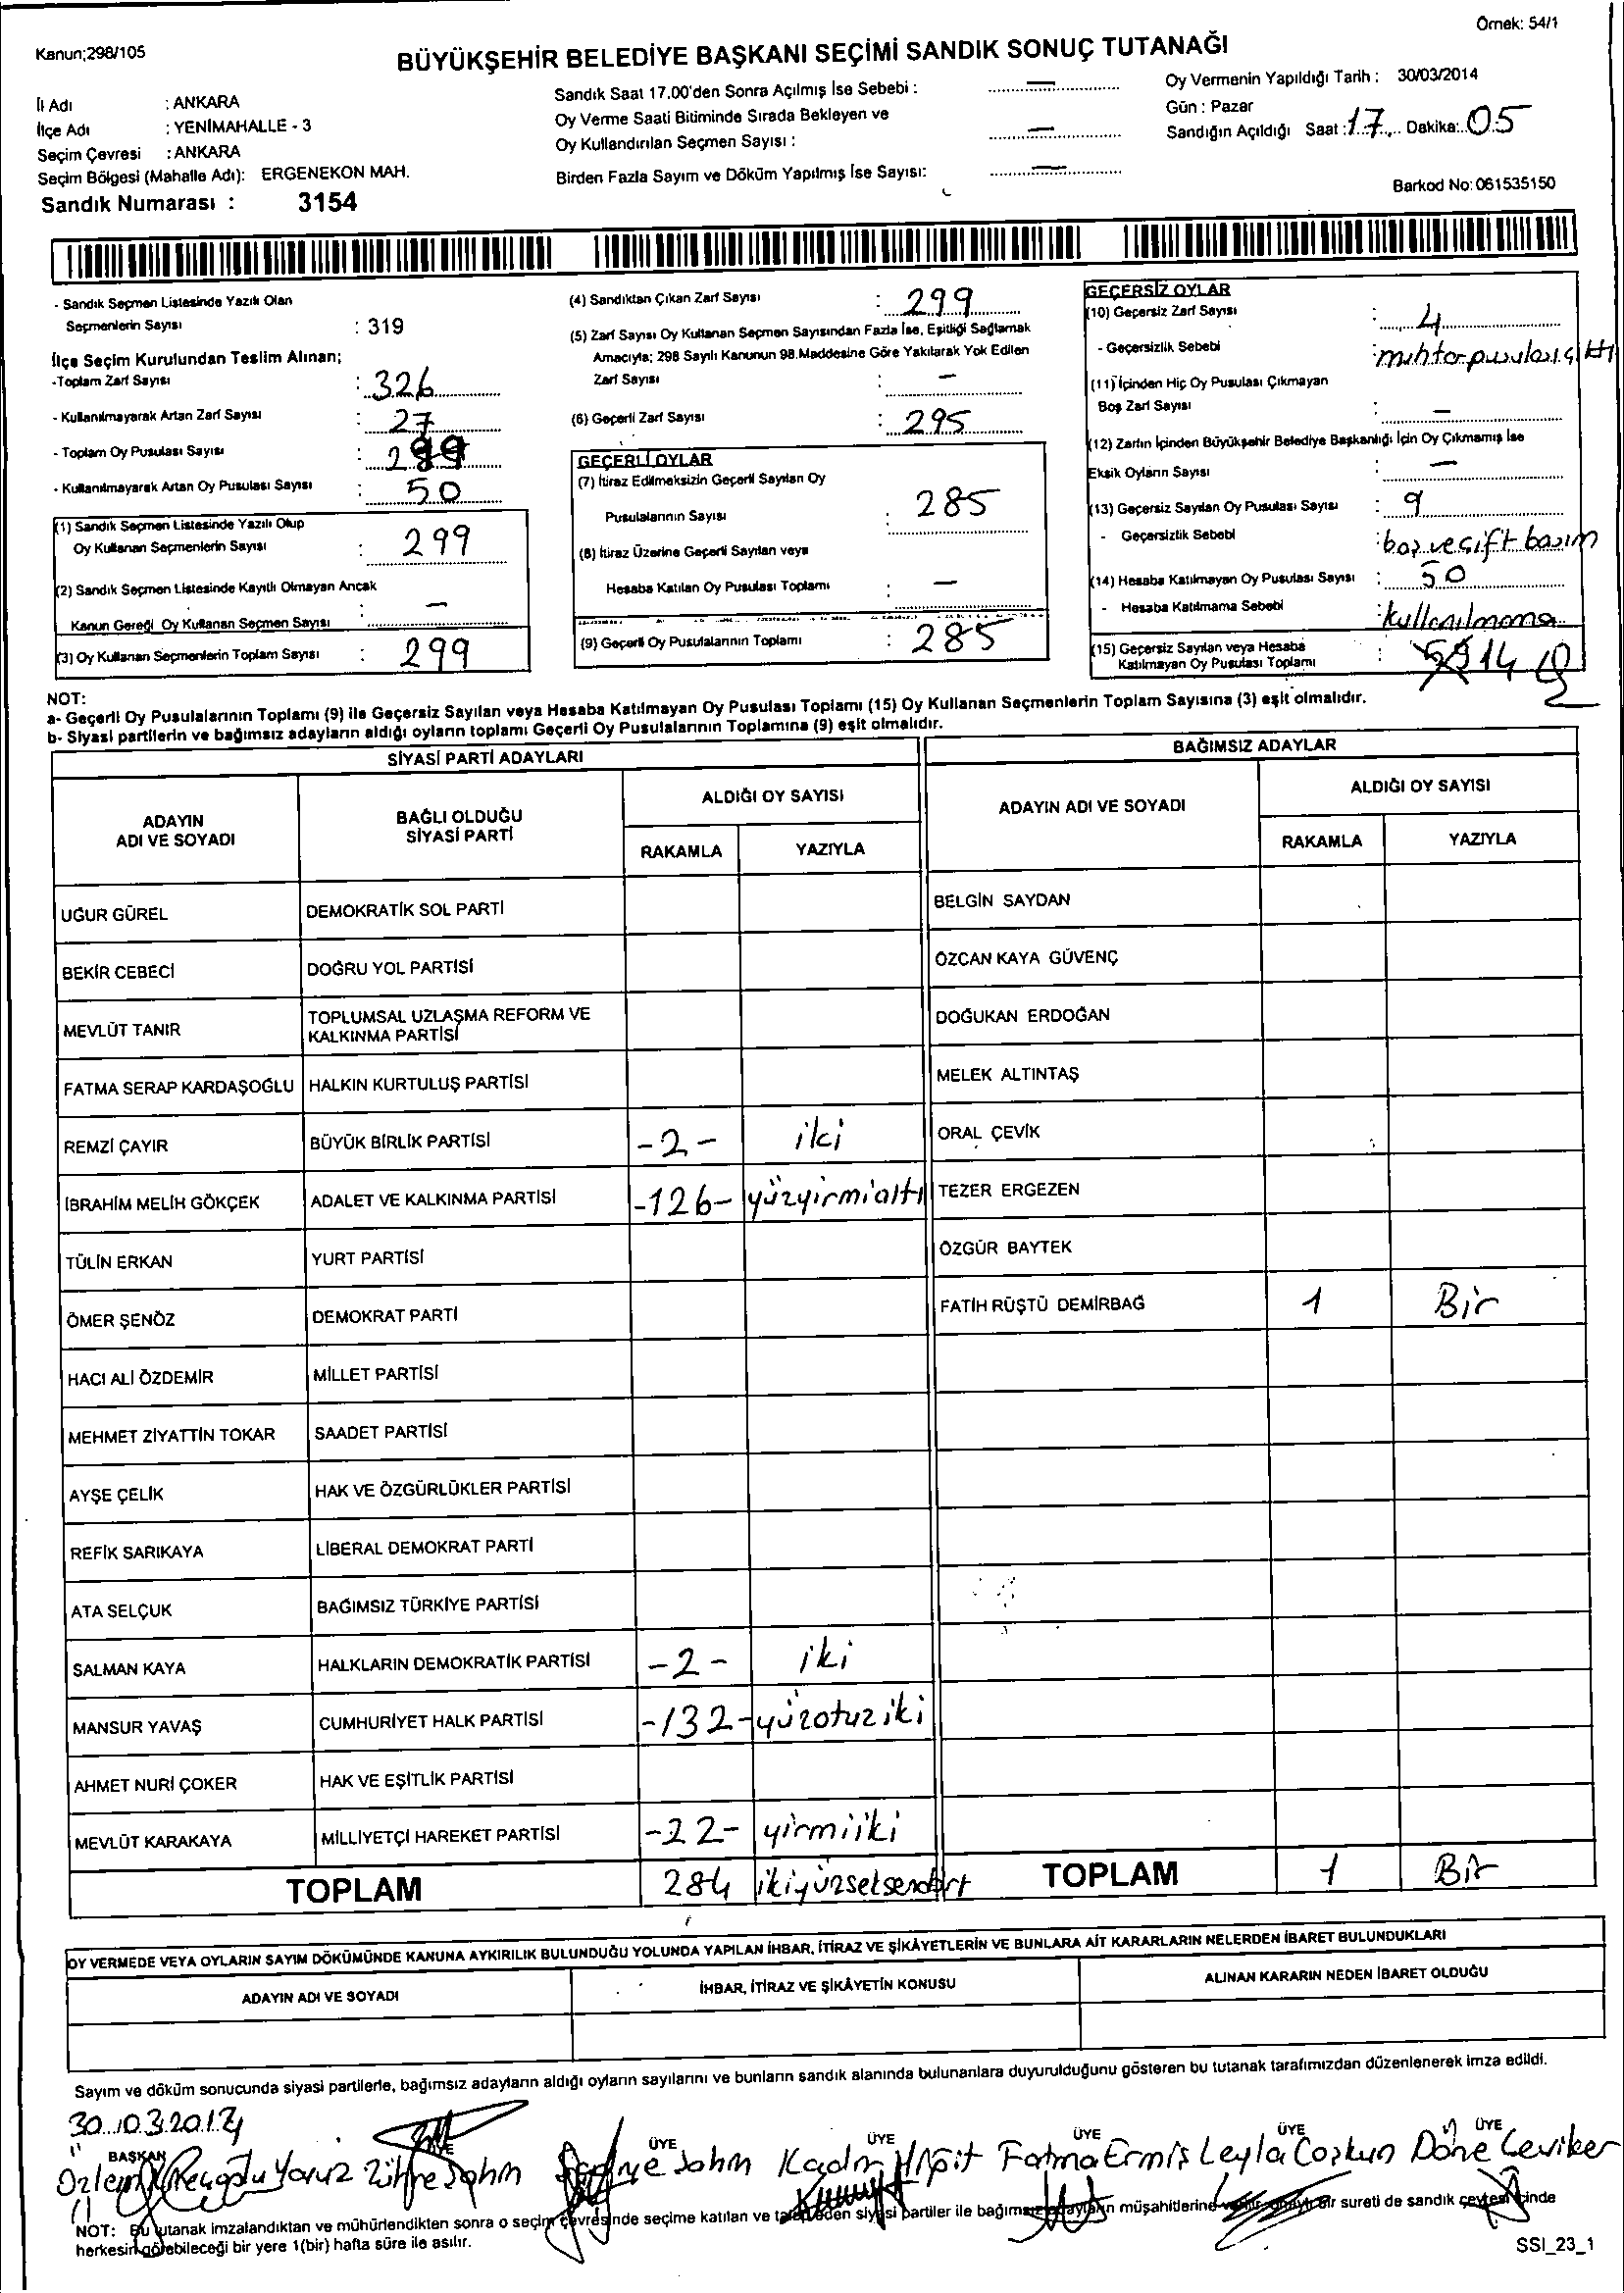 Örnek: 54/1
Kanun;298/105
BÜYÜKŞEHİR BELEDİYE BAŞKANI SEÇİMİ SANDIK SONUÇ TUTANAĞI
İl Adı : ANKARA
İlçe Adı : YENİMAHALLE - 3
Seçim Çevresi : ANKARA
Seçim Bölgesi (Mahalle Adı): ERGENEKON MAH.
Sandık Numarası : 3154
Sandık Saat 17.00'den Sonra Açılmış İse Sebebi : —
Oy Verme Saati Bitiminde Sırada Bekleyen ve
Oy Kullandırılan Seçmen Sayısı : —
Birden Fazla Sayım ve Döküm Yapılmış İse Sayısı: —
Oy Vermenin Yapıldığı Tarih : 30/03/2014
Gün : Pazar
Sandığın Açıldığı Saat : 17 Dakika: 05
Barkod No: 061535150
- Sandık Seçmen Listesinde Yazılı Olan
Seçmenlerin Sayısı : 319
İlçe Seçim Kurulundan Teslim Alınan;
-Toplam Zarf Sayısı : 326
- Kullanılmayarak Artan Zarf Sayısı : 27
- Toplam Oy Pusulası Sayısı :
- Kullanılmayarak Artan Oy Pusulası Sayısı : 50
(1) Sandık Seçmen Listesinde Yazılı Olup
Oy Kullanan Seçmenlerin Sayısı : 299
(2) Sandık Seçmen Listesinde Kayıtlı Olmayan Ancak
Kanun Gereği Oy Kullanan Seçmen Sayısı : —
(3) Oy Kullanan Seçmenlerin Toplam Sayısı : 299
(4) Sandıktan Çıkan Zarf Sayısı : 299
(5) Zarf Sayısı Oy Kullanan Seçmen Sayısından Fazla İse, Eşitliği Sağlamak
Amacıyla; 298 Sayılı Kanunun 98.Maddesine Göre Yakılarak Yok Edilen
Zarf Sayısı : —
(6) Geçerli Zarf Sayısı : 295
GEÇERLİ OYLAR
(7) İtiraz Edilmeksizin Geçerli Sayılan Oy
Pusulalarının Sayısı : 285
(8) İtiraz Üzerine Geçerli Sayılan veya
Hesaba Katılan Oy Pusulası Toplamı : —
(9) Geçerli Oy Pusulalarının Toplamı : 285
GEÇERSİZ OYLAR
(10) Geçersiz Zarf Sayısı : 4
- Geçersizlik Sebebi : muhtar pusulası çıktı
(11) İçinden Hiç Oy Pusulası Çıkmayan
Boş Zarf Sayısı : —
(12) Zarfın İçinden Büyükşehir Belediye Başkanlığı İçin Oy Çıkmamış İse
Eksik Oyların Sayısı : —
(13) Geçersiz Sayılan Oy Pusulası Sayısı : 9
- Geçersizlik Sebebi : boş ve çift basım
(14) Hesaba Katılmayan Oy Pusulası Sayısı : 50
- Hesaba Katılmama Sebebi : kullanılmama
(15) Geçersiz Sayılan veya Hesaba
Katılmayan Oy Pusulası Toplamı : 14
NOT:
a- Geçerli Oy Pusulalarının Toplamı (9) ile Geçersiz Sayılan veya Hesaba Katılmayan Oy Pusulası Toplamı (15) Oy Kullanan Seçmenlerin Toplam Sayısına (3) eşit olmalıdır.
b- Siyasi partilerin ve bağımsız adayların aldığı oyların toplamı Geçerli Oy Pusulalarının Toplamına (9) eşit olmalıdır.
SİYASİ PARTİ ADAYLARI
ADAYIN
ADI VE SOYADI
BAĞLI OLDUĞU
SİYASİ PARTİ
ALDIĞI OY SAYISI
RAKAMLA YAZIYLA
UĞUR GÜREL DEMOKRATİK SOL PARTİ
BEKİR CEBECİ DOĞRU YOL PARTİSİ
MEVLÜT TANIR TOPLUMSAL UZLAŞMA REFORM VE
KALKINMA PARTİSİ
FATMA SERAP KARDAŞOĞLU HALKIN KURTULUŞ PARTİSİ
REMZİ ÇAYIR BÜYÜK BİRLİK PARTİSİ -2- iki
İBRAHİM MELİH GÖKÇEK ADALET VE KALKINMA PARTİSİ -126- yüzyirmialtı
TÜLİN ERKAN YURT PARTİSİ
ÖMER ŞENÖZ DEMOKRAT PARTİ
HACI ALİ ÖZDEMİR MİLLET PARTİSİ
MEHMET ZİYATTİN TOKAR SAADET PARTİSİ
AYŞE ÇELİK HAK VE ÖZGÜRLÜKLER PARTİSİ
REFİK SARIKAYA LİBERAL DEMOKRAT PARTİ
ATA SELÇUK BAĞIMSIZ TÜRKİYE PARTİSİ
SALMAN KAYA HALKLARIN DEMOKRATİK PARTİSİ -2- iki
MANSUR YAVAŞ CUMHURİYET HALK PARTİSİ -132- yüzotuziki
AHMET NURİ ÇOKER HAK VE EŞİTLİK PARTİSİ
MEVLÜT KARAKAYA MİLLİYETÇİ HAREKET PARTİSİ -22- yirmiiki
TOPLAM 284 ikiyüzseksendört
BAĞIMSIZ ADAYLAR
ADAYIN ADI VE SOYADI
ALDIĞI OY SAYISI
RAKAMLA YAZIYLA
BELGİN SAYDAN
ÖZCAN KAYA GÜVENÇ
DOĞUKAN ERDOĞAN
MELEK ALTINTAŞ
ORAL ÇEVİK
TEZER ERGEZEN
ÖZGÜR BAYTEK
FATİH RÜŞTÜ DEMİRBAĞ 1 Bir
TOPLAM 1 Bir
OY VERMEDE VEYA OYLARIN SAYIM DÖKÜMÜNDE KANUNA AYKIRILIK BULUNDUĞU YOLUNDA YAPILAN İHBAR, İTİRAZ VE ŞİKÂYETLERİN VE BUNLARA AİT KARARLARIN NELERDEN İBARET BULUNDUKLARI
ADAYIN ADI VE SOYADI İHBAR, İTİRAZ VE ŞİKÂYETİN KONUSU ALINAN KARARIN NEDEN İBARET OLDUĞU
Sayım ve döküm sonucunda siyasi partilerle, bağımsız adayların aldığı oyların sayılarını ve bunların sandık alanında bulunanlara duyurulduğunu gösteren bu tutanak tarafımızdan düzenlenerek imza edildi.
30.03.2014
BAŞKAN ÜYE ÜYE ÜYE ÜYE ÜYE
Özlem Yavuz Zühre Şahin Şahin Kadir Fatma Ermiş Leyla Coşkun Döne Ceviker
NOT: Bu tutanak imzalandıktan ve mühürlendikten sonra o seçim çevresinde seçime katılan ve talep eden siyasi partiler ile bağımsız adayların müşahitlerine bir sureti de sandık çevresi içinde
herkesin görebileceği bir yere 1(bir) hafta süre ile asılır.
SSI_23_1